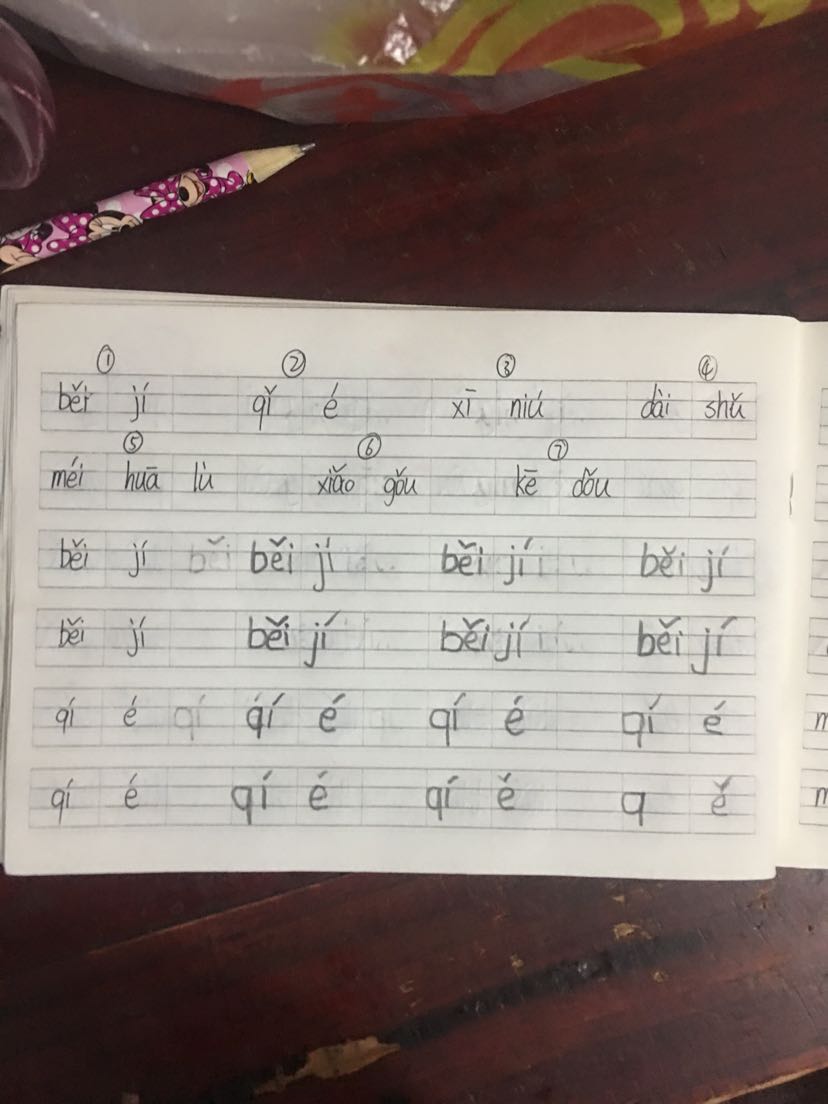 ① ② ③ ④
běi jí qǐ é xī niú dài shǔ
⑤ ⑥ ⑦
méi huā lù xiǎo gǒu kē dǒu
běi jí běi jí běi jí běi jí
běi jí běi jí běi jí běi jí
qí é qí é qí é qí é
qí é qí é qí ě q ě